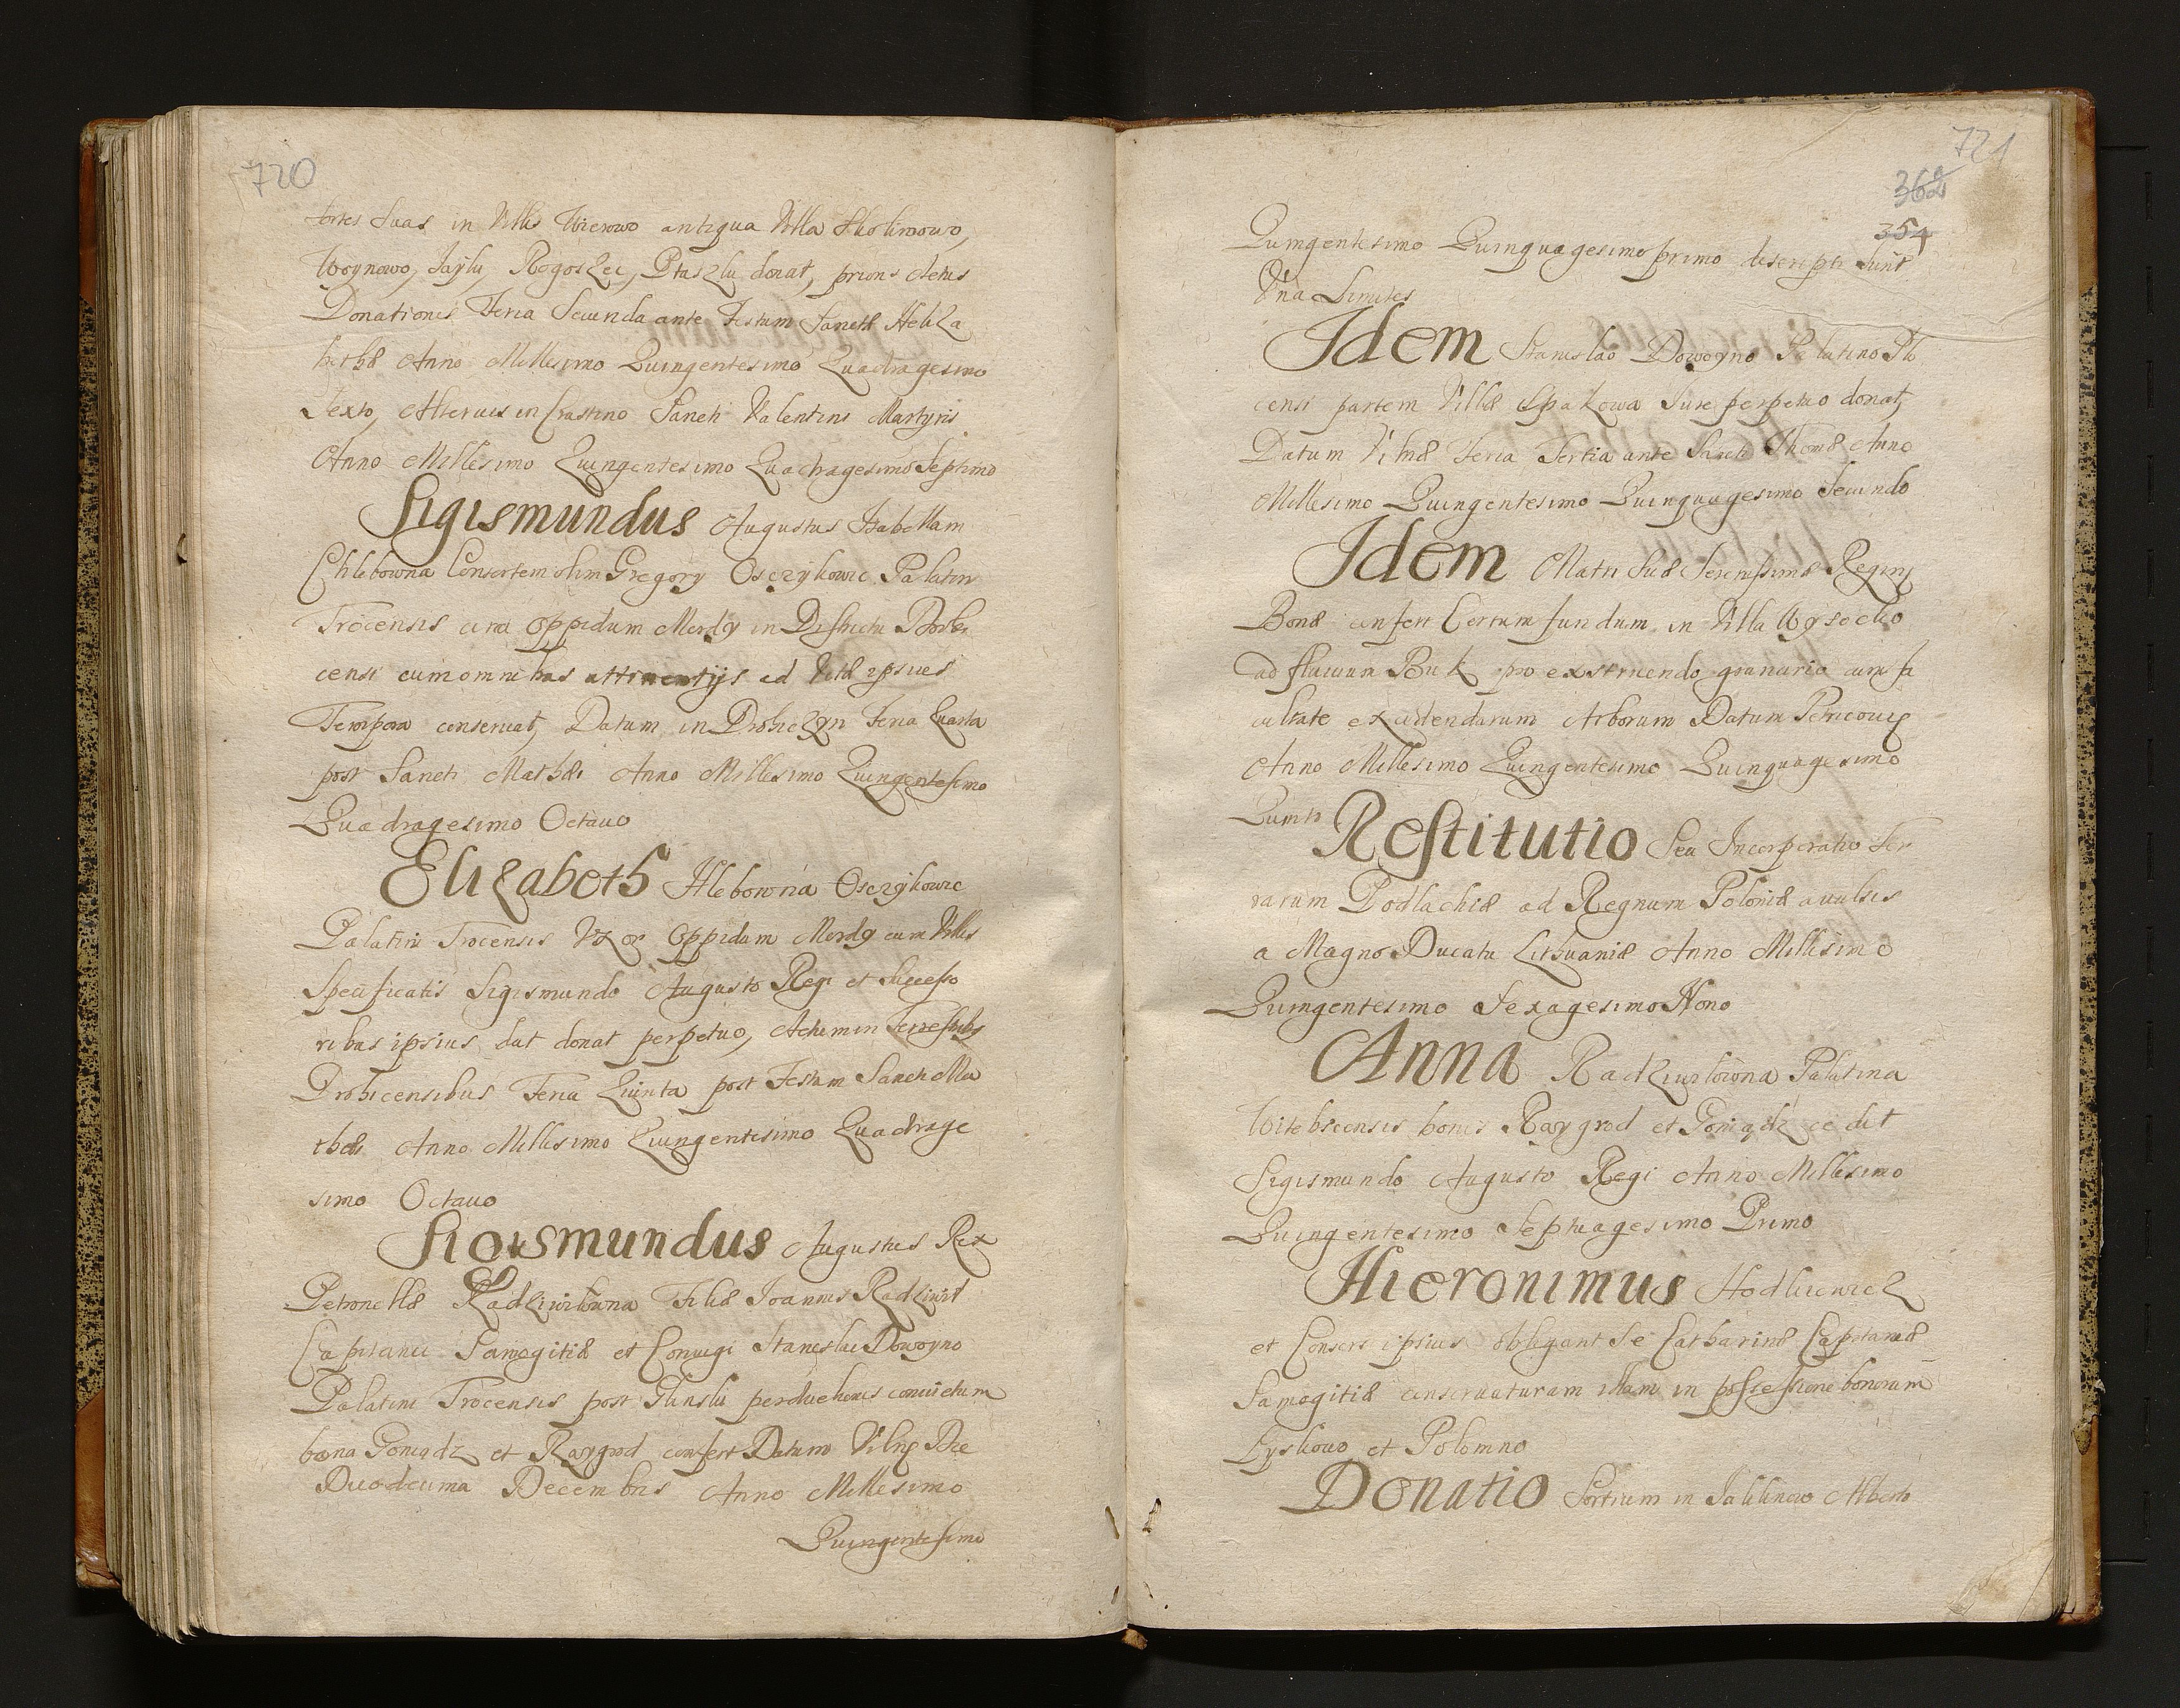 720
sortes Suas in Villis Wierowo antiqua Villa Skolimowo,
Woynowo, Sayki, Rogoszce, Ptaszki donat, prioris Actus
Donationis Feria Secunda ante Festum Sanctæ Heliza
bethæ Anno Millesimo Quingentesimo Quadragesimo
Sexto, Alterius in Crastino Sancti Valentini Martyris
Anno Millesimo Quingentesimo Quadragesimo Septimo
Sigismundus Augustus Isabellam
Chlebowna Consortem olim Gregory Osczykowic Palatini
Trocensis circa Oppidum Mordy in Districtu Drohi
censi cum omnibus attinentijs ad Vitæ ipsius
Tempora conservat, Datum in Drohiczyn Feria Quarta
post Sancti Mathæi Anno Millesimo Quingentesimo
Quadragesimo Octavo
Elizabeth Hlebowna Osczykowic
Palatini Trocensis Vxor Oppidum Mordy cum Villis
Specificatis Sigismundo Augusto Regi et Successo
ribus ipsius dat donat perpetuo, Actum in Terrestribus
Drohicensibus Feria Quinta post Festum Sancti Ma
thæi Anno Millesimo Quingentesimo Quadrage
simo Octavo
Sigismundus Augustus Rex
Petronellæ Radziwilowna Filiæ Joannis Radziwil
Capitanei Samogitiæ et Coniugi Stanislai Dowoyno
Palatini Trocensis post Glinski perduelionis convictum
bona Goniądz et Raygrod confert Datum Vilnę Die
Duodecima Decembris Anno Millesimo
Quingentesimo
721
362
354
Quingentesimo Quinquagesimo primo descripti Sunt
Vna Limites
Idem Stanislao Dowoyno Palatino Plo
censi partem Villæ Spakowa Jure perpetuo donat,
Datum Vilnæ Feria Tertia ante Sancti Thomæ Anno
Millesimo Quingentesimo Quinquagesimo Secundo
Idem Matri Suæ Serenissimæ Reginę
Bonæ confert Certum fundum in Villa Wysocko
ad fluvium Buk pro exstruendo granario cum fa
cultate excidendarum Arborum Datum Petricovię
Anno Millesimo Quingentesimo Quinquagesimo
Quinto
Restitutio Seu Incorporatio Ter
rarum Podlachiæ ad Regnum Poloniæ avulsis
a Magno Ducatu Lithuaniæ Anno Millesimo
Quingentesimo Sexagesimo Nono
Anna Radziwilowna Palatina
Witebscensis bonis Raygrod et Goniądz cedit
Sigismundo Augusto Regi Anno Millesimo
Quingentesimo Septuagesimo Primo
Hieronimus Hodkiewicz
et Consors ipsius obligant Se Catharinæ Capitaneæ
Samogitiæ conservaturam illam in possessione bonorum
Lyskowo et Polomno
Donatio Sortium in Jablonowo Alberto